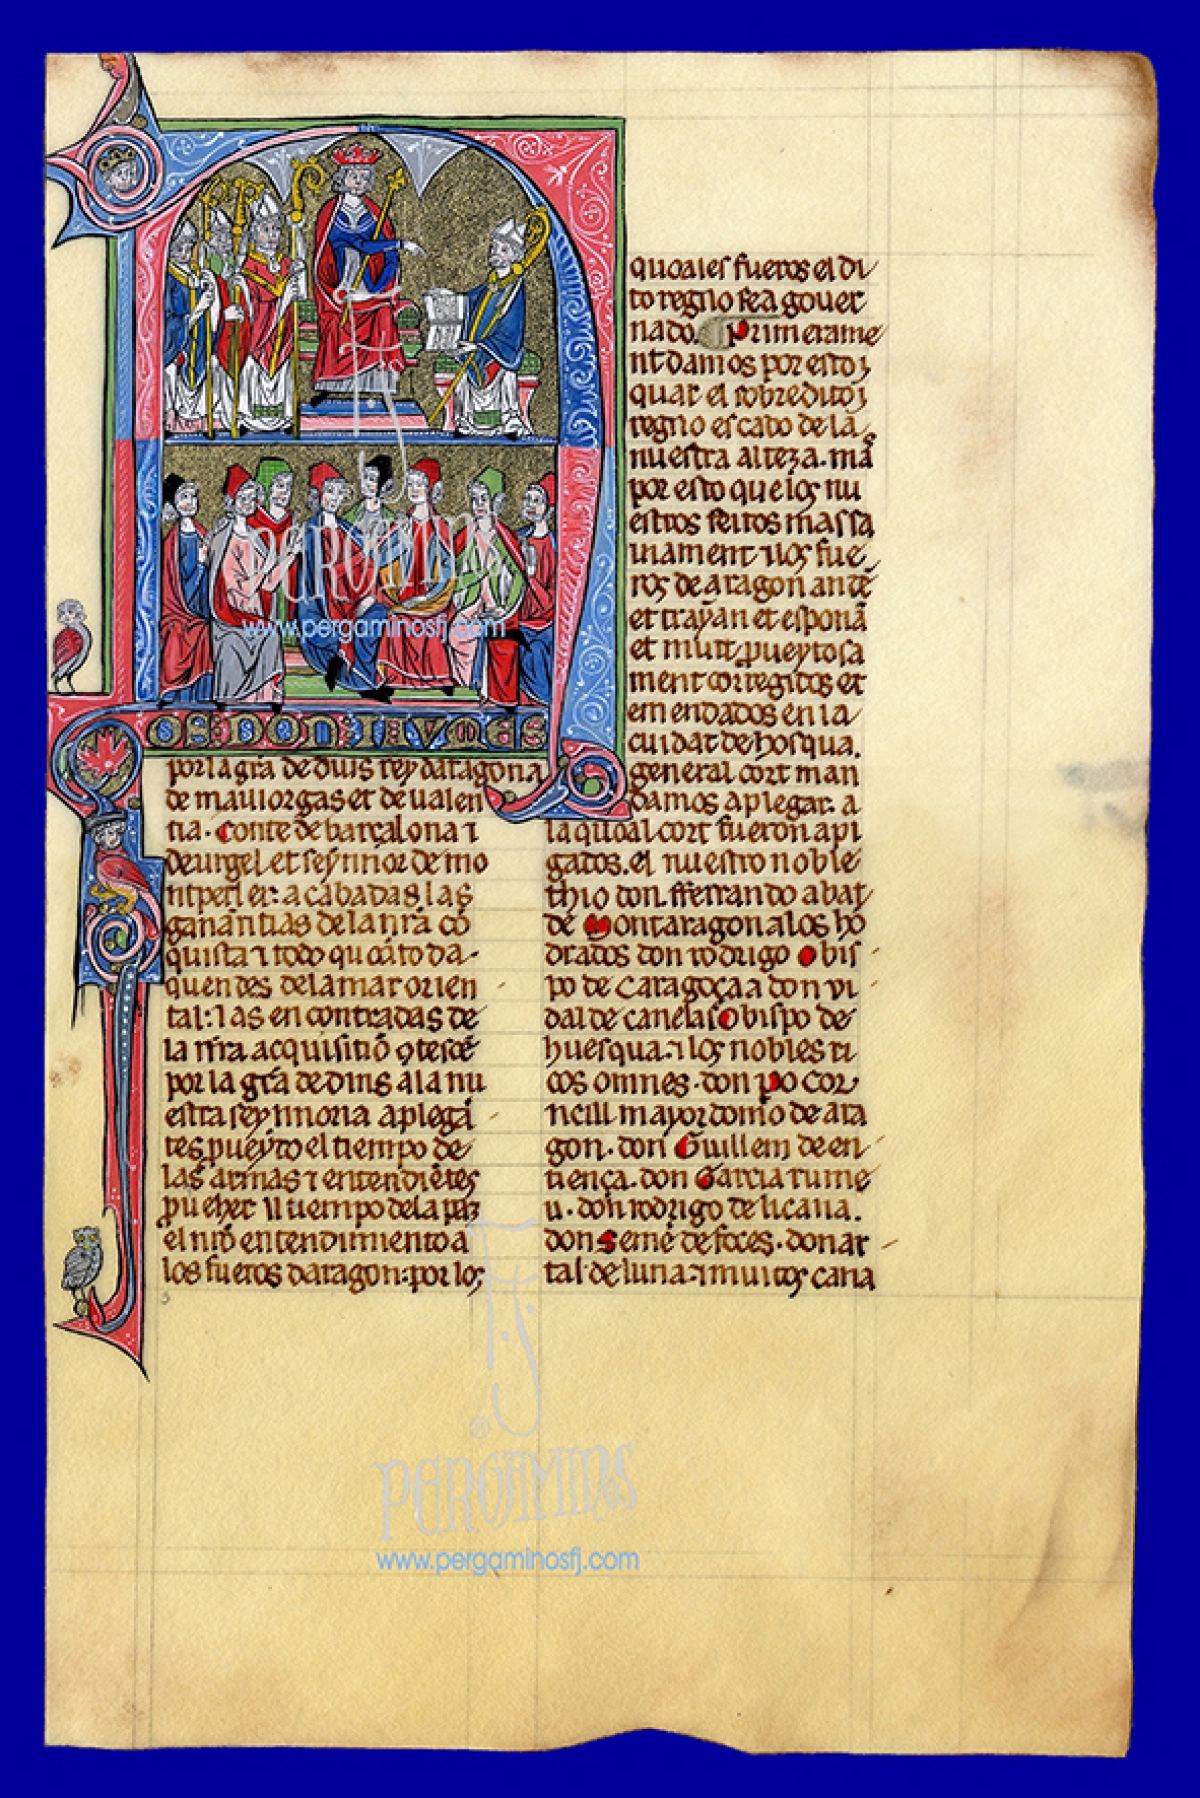 OS DON IAVMES
por la gr̄a de dius rey daragon a
de mallorgas et de ualen
tia. Conte de barçalona ⁊
de urgel. et seynnior de mo
ntpesler: acabadas las
ganantias de la nr̄a cō
quista ⁊ todo quāto da
quendes de la mar orien
tal: las encontradas de
la nr̄a acquisitiō
por la gr̄a de dius a la nu
estra seynnoria aplegā
tes pueyto el tiempo de
las armas ⁊ entendiētes
el tiempo de la paz
el nr̄o entendimiento a
los fueros daragon: por los
quoales fueros el di
to regno sea gouer
nado. Primerame
nt damos por esto
quar el sobredito
regno es cabo de la
nuestra alteza. ma
por esto que los nu
estros feitos mas sa
uiament ⁊ los fue
ros de aragon ante
et trayan et esponā
et muit prueytosa
ment corregidos et
emendados en la
ciudat de hosqua.
general cort man
damos aplegar. a
la quoal cort fueron apl
gados. el nuestro noble
thio don. fferrando abat
de Montaragon a los hō
drados don rodrigo Obis
po de Caragoça a don vi
dal de canelas Obispo de
huesqua. ⁊ los nobles ri
cos omnes. don po Cor
ncill mayordomo de ara
gon. don Guillem de en
tiença. don Garcia rume
u. don rodrigo de licana.
don Semē de foces. don ar
tal de luna. ⁊ muitos caua
PERGAMINS
www.pergaminosfj.com
® PERGAMINS
www.pergaminosfj.com